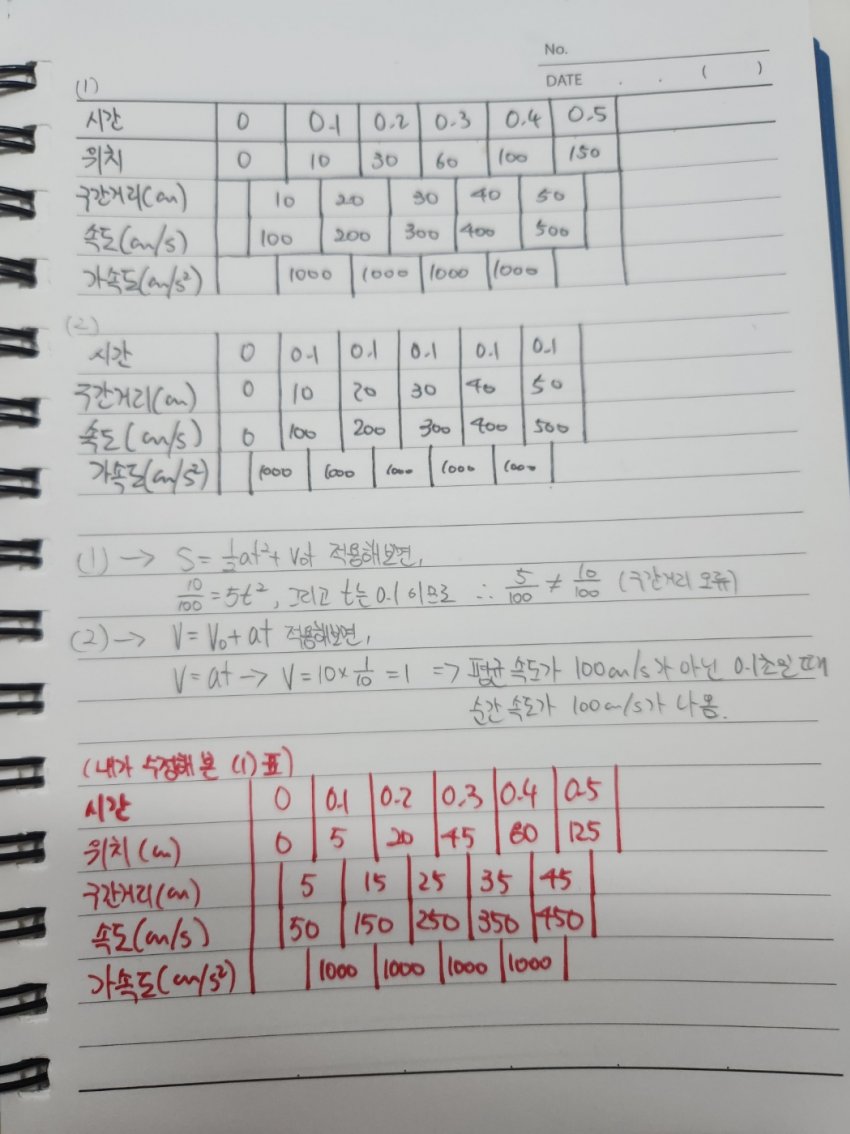 No.
DATE . . ( )
(1)
시간 0 0.1 0.2 0.3 0.4 0.5
위치 0 10 30 60 100 150
구간거리(cm) 10 20 30 40 50
속도(cm/s) 100 200 300 400 500
가속도(cm/s²) 1000 1000 1000 1000
(2)
시간 0 0.1 0.1 0.1 0.1 0.1
구간거리(cm) 0 10 20 30 40 50
속도(cm/s) 0 100 200 300 400 500
가속도(cm/s²) 1000 1000 1000 1000 1000
(1) → S = ½at² + V₀t 적용해보면,
10/100 = 5t², 그리고 t는 0.1 이므로 ∴ 5/100 ≠ 10/100 (구간거리 오류)
(2) → V = V₀ + at 적용해보면,
V = at → V = 10 × 1/10 = 1 ⇒ 평균 속도가 100cm/s가 아닌 0.1초일 때
순간 속도가 100cm/s가 나옴.
(내가 수정해 본 (1) 표)
시간 0 0.1 0.2 0.3 0.4 0.5
위치(cm) 0 5 20 45 80 125
구간거리(cm) 5 15 25 35 45
속도(cm/s) 50 150 250 350 450
가속도(cm/s²) 1000 1000 1000 1000